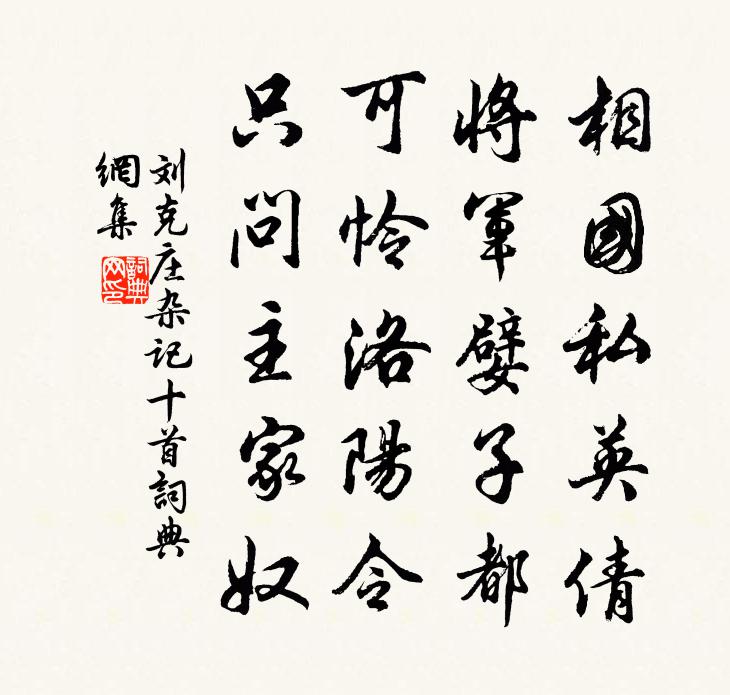 相國私英倩
將軍嬖子都
可怜洛陽令
只問主家奴
刘克庄杂记十首詞典
網集
詞典網印